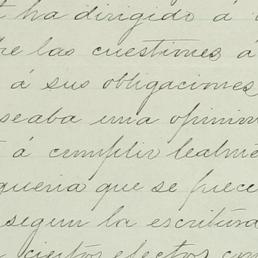 ha dirigido á
las cuestiones á
á sus obligaciones
seaba una opinion
á cumplir lealme
queria que se prec
segun la escritura
ciertos efectos con